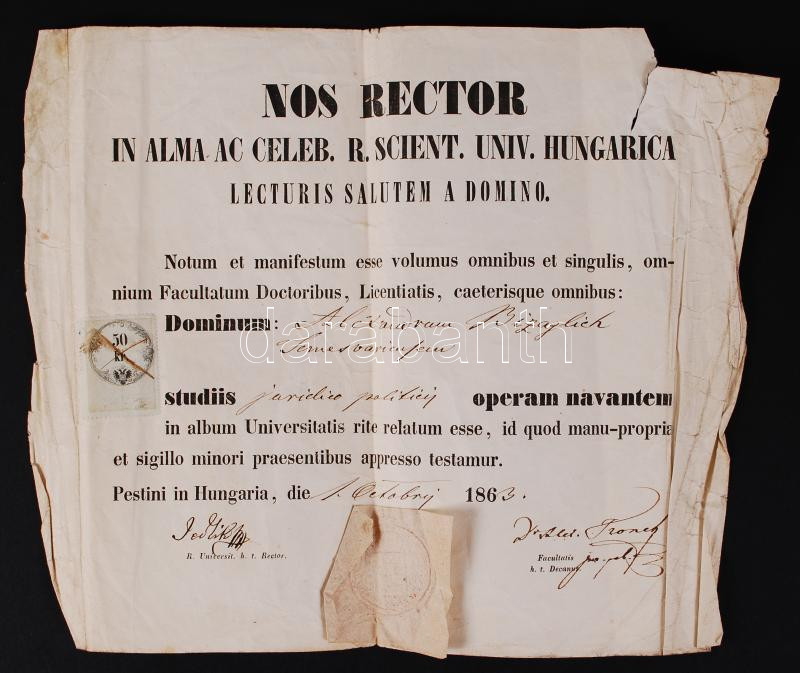 NOS RECTOR
IN ALMA AC CELEB. R. SCIENT. UNIV. HUNGARICA
LECTURIS SALUTEM A DOMINO.
Notum et manifestum esse volumus omnibus et singulis, om-
nium Facultatum Doctoribus, Licentiatis, caeterisque omnibus:
Dominum: Alexandrum
Temesvariensem
50
kr
darabanth
studiis juridico politicis operam navantem
in album Universitatis rite relatum esse, id quod manu-propria
et sigillo minori praesentibus appresso testamur.
Pestini in Hungaria, die 1. Octobris 1863.
Jedlik
R. Universit. h. t. Rector.
Facultatis
h. t. Decanus.